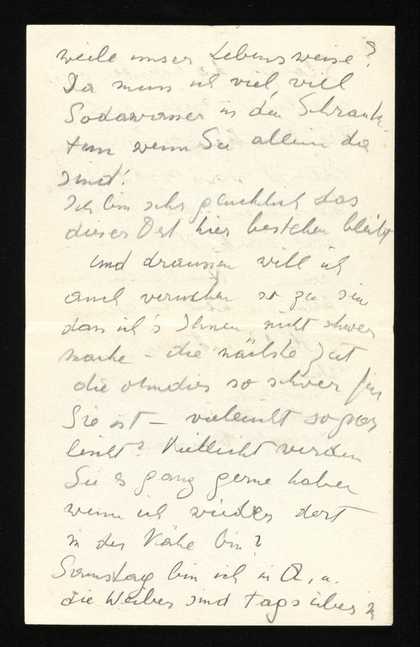 weile unser Lebensweise?
Da muss ich viel, viel
Sodawasser in den Schrank
tun wenn Sie allein da
sind!
Ich bin sehr glücklich das
dieser Ort hier bestehen bleibt
und draussen will ich
auch versuchen so zu sein
dass ich's Ihnen nicht schwer
mache – die nächste Zeit
die ohnedies so schwer für
Sie ist – vielleicht sogar
leicht? Vielleicht werden
Sie es ganz gerne haben
wenn ich wieder dort
in der Nähe bin?
Samstag bin ich in A, u.
die Weiber sind tags über in